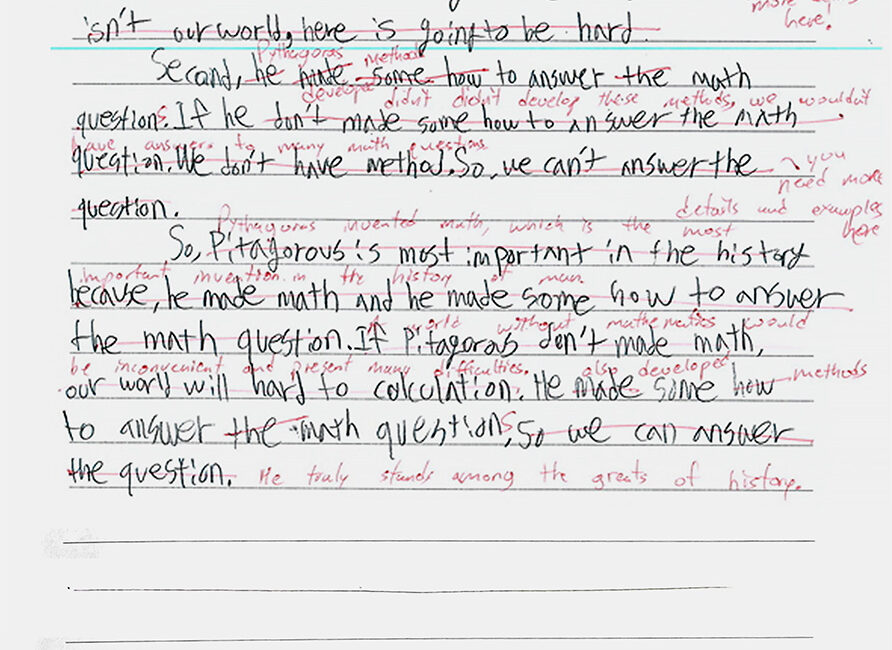 more
here.
isn't our world, here is going to be hard.
Pythagoras methods
Second, he made some how to answer the math
developed didn't didn't develop these methods, we wouldn't
questions. If he don't made some how to answer the math
have answers to many math questions
question. We don't have method. So, we can't answer the
you
need more
question.
details and examples
here
Pythagoras invented math, which is the most
So, Pitagorous is most important in the history
important invention in the history of man.
because, he made math and he made some how to answer
A world without mathematics would
the math question. If Pitagoras don't made math,
be inconvenient and present many difficulties. also developed methods
our world will hard to calculation. He made some how
to answer the math questions, so we can answer
the question. He truly stands among the greats of history.